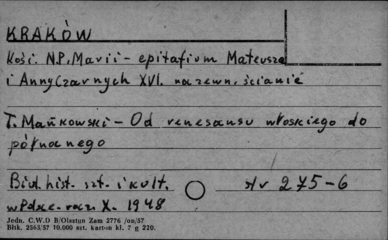 KRAKÓW
Kośc. N.P. Marii - epitafium Mateusza
i Anny Czarnych XVI. na zewn. ścianie
T. Mańkowski - Od renesansu włoskiego do
północnego
Biul. hist. szt. i kult. str 275-6
w Polsce. rocz. X. 1948
Jedn. C.W.D B/Olsztyn Zam 2776 /oo/57
Bltk. 2563/57 10.000 szt. karton kl. 7 g 220.